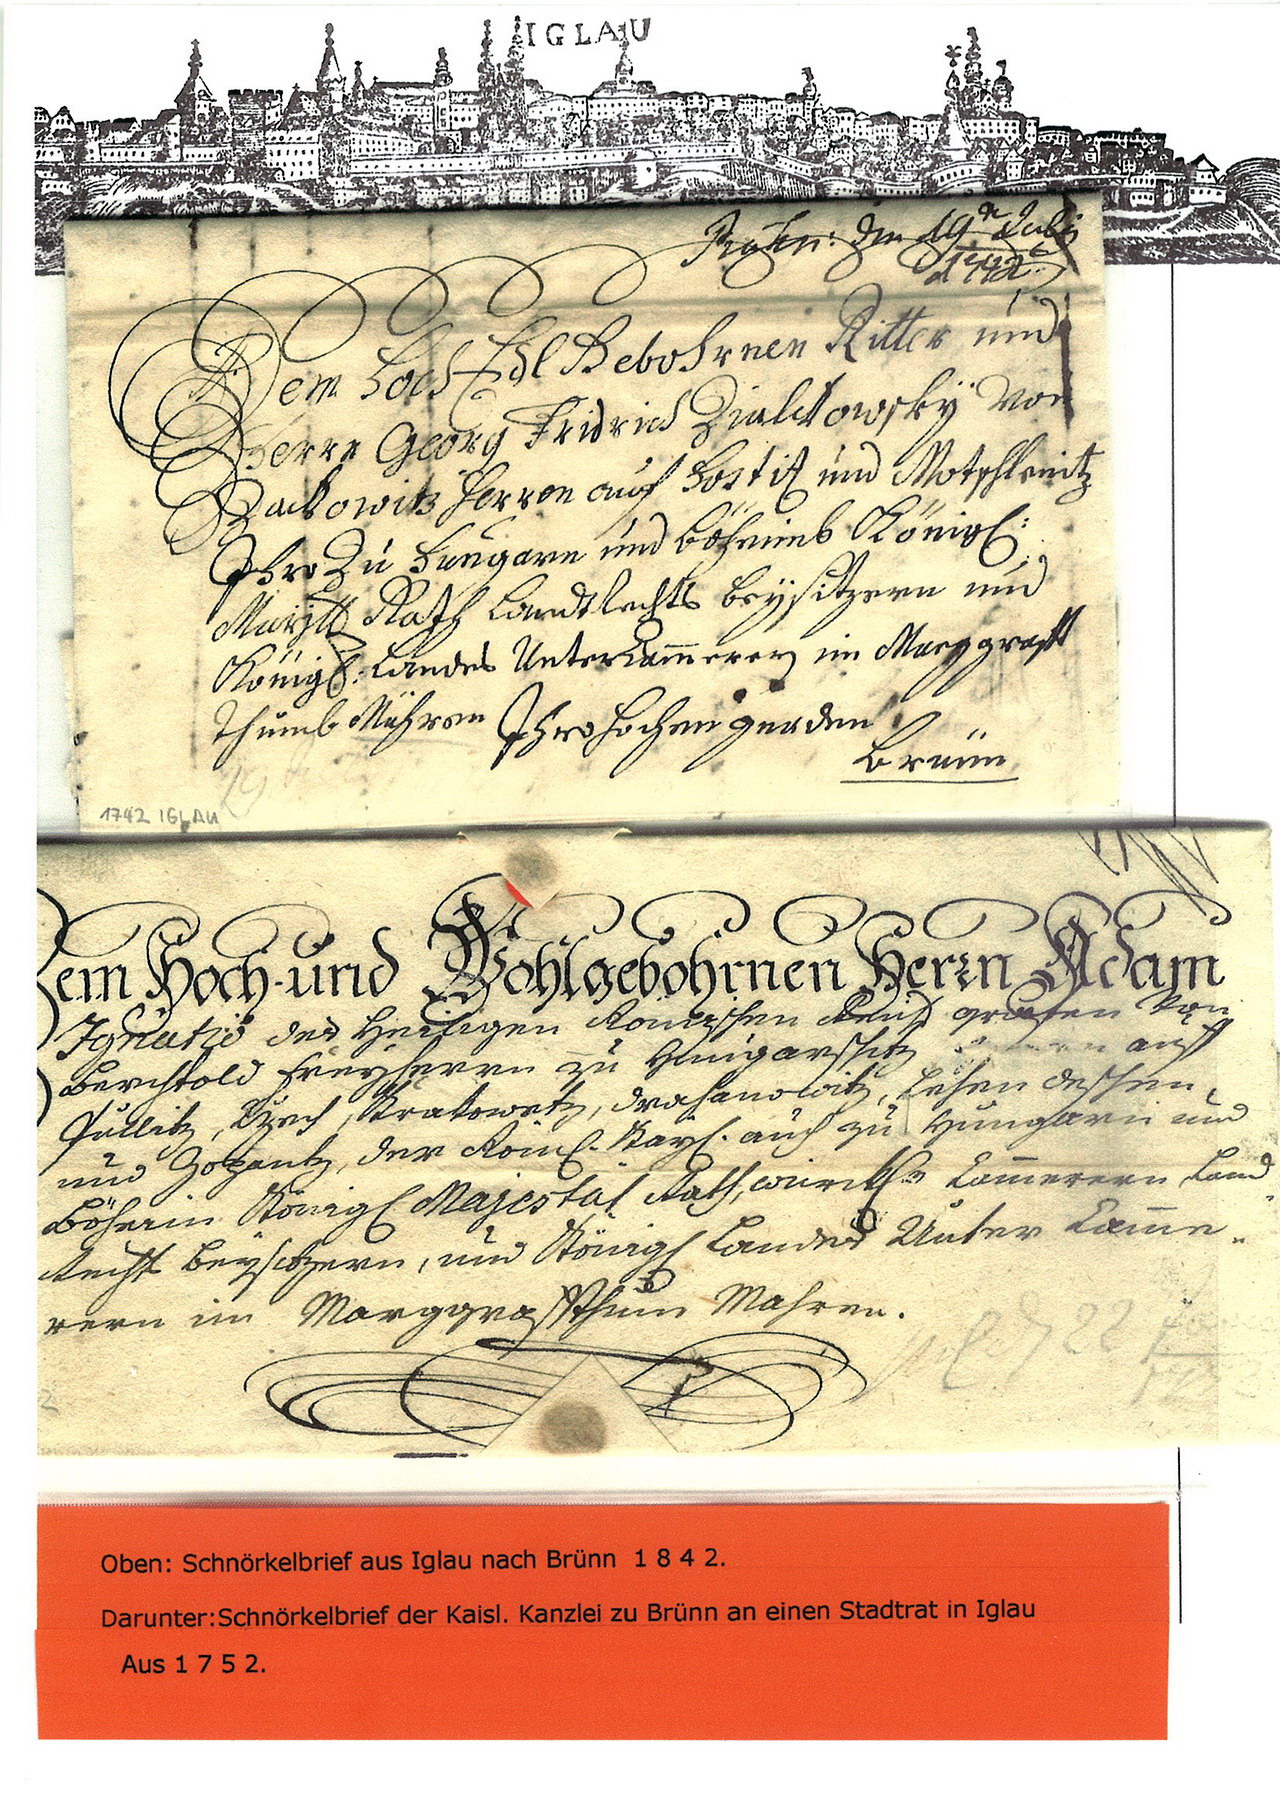 IGLAU
den 19 July
Dem Hoch Edl Gebohrnen Ritter und
Herrn Georg Fridrich Zialkowsky Von
Zackowitz Herren auf und
Ihro Zu Hungarn und Böheimb Königl:
Mayjtt Rath Landtrechts beysitzern und
Königl: Landes Unter Cammerern im Marggraff
thumb Mähren Ihro Hochen gnaden
Brünn
1742 IGLAU
Dem Hoch und Wohlgebohrnen Herrn Adam
Ignatio des Heiligen Römischen Reichs grafen Von
Berchtold Freyherrn zu Hungarschitz auff
Pullitz, Lehen dessen,
und der Röm. Kayl. auch zu Hungarn und
Böheim Königl Majestät Rath, würckl. Cammerern Land
recht Beysitzern, und Königl Landes Unter Camme-
rern im Marggraffthum Mahren.
Oben: Schnörkelbrief aus Iglau nach Brünn 1 8 4 2.
Darunter:Schnörkelbrief der Kaisl. Kanzlei zu Brünn an einen Stadtrat in Iglau
Aus 1 7 5 2.